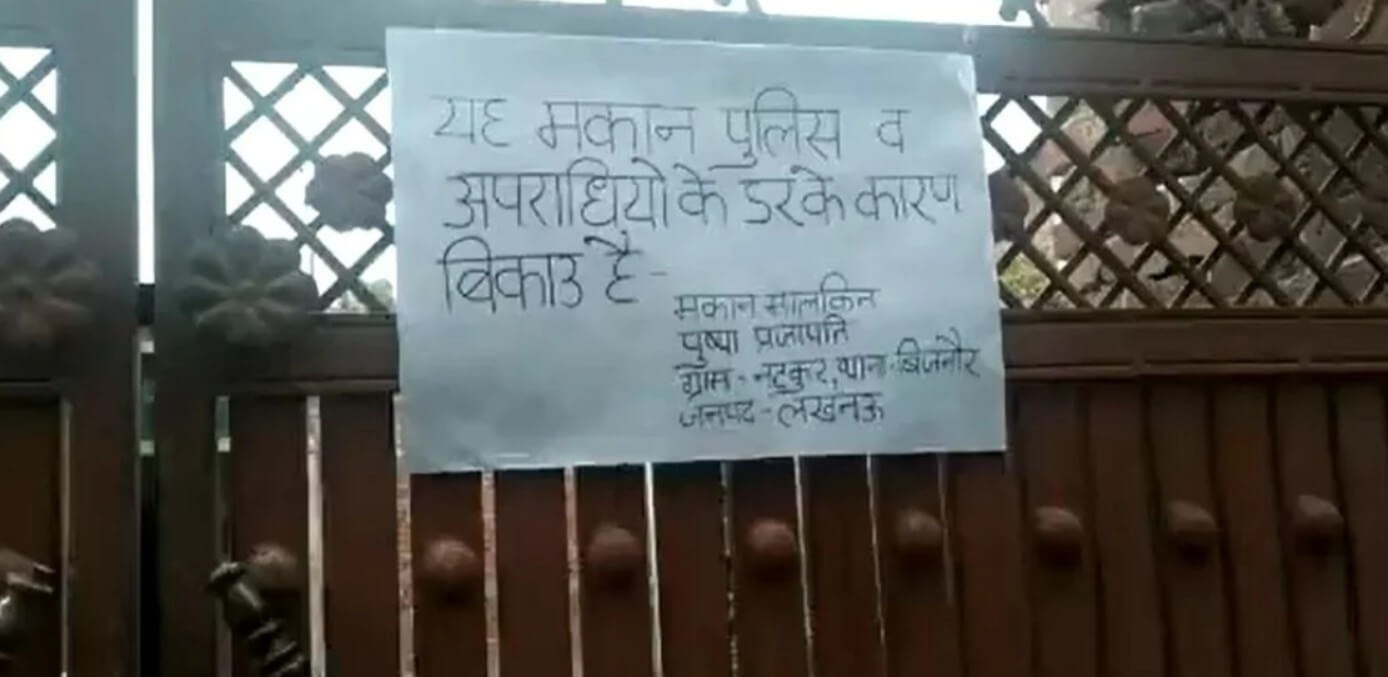 यह मकान पुलिस व
अपराधियो के डर के कारण
बिकाउ है -
मकान मालकिन
पुष्पा प्रजापति
ग्राम - नटकुर, थाना - बिजनौर
जनपद - लखनऊ